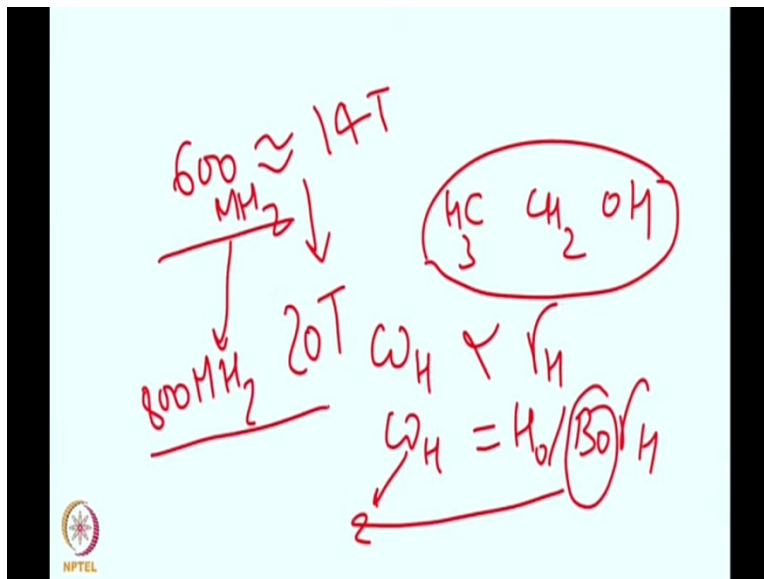 600 ≈ 14T
MHz
H₃C CH₂ OH
800MHz 20T
ω_H ∝ γ_H
ω_H = H₀/B₀ γ_H
2
NPTEL